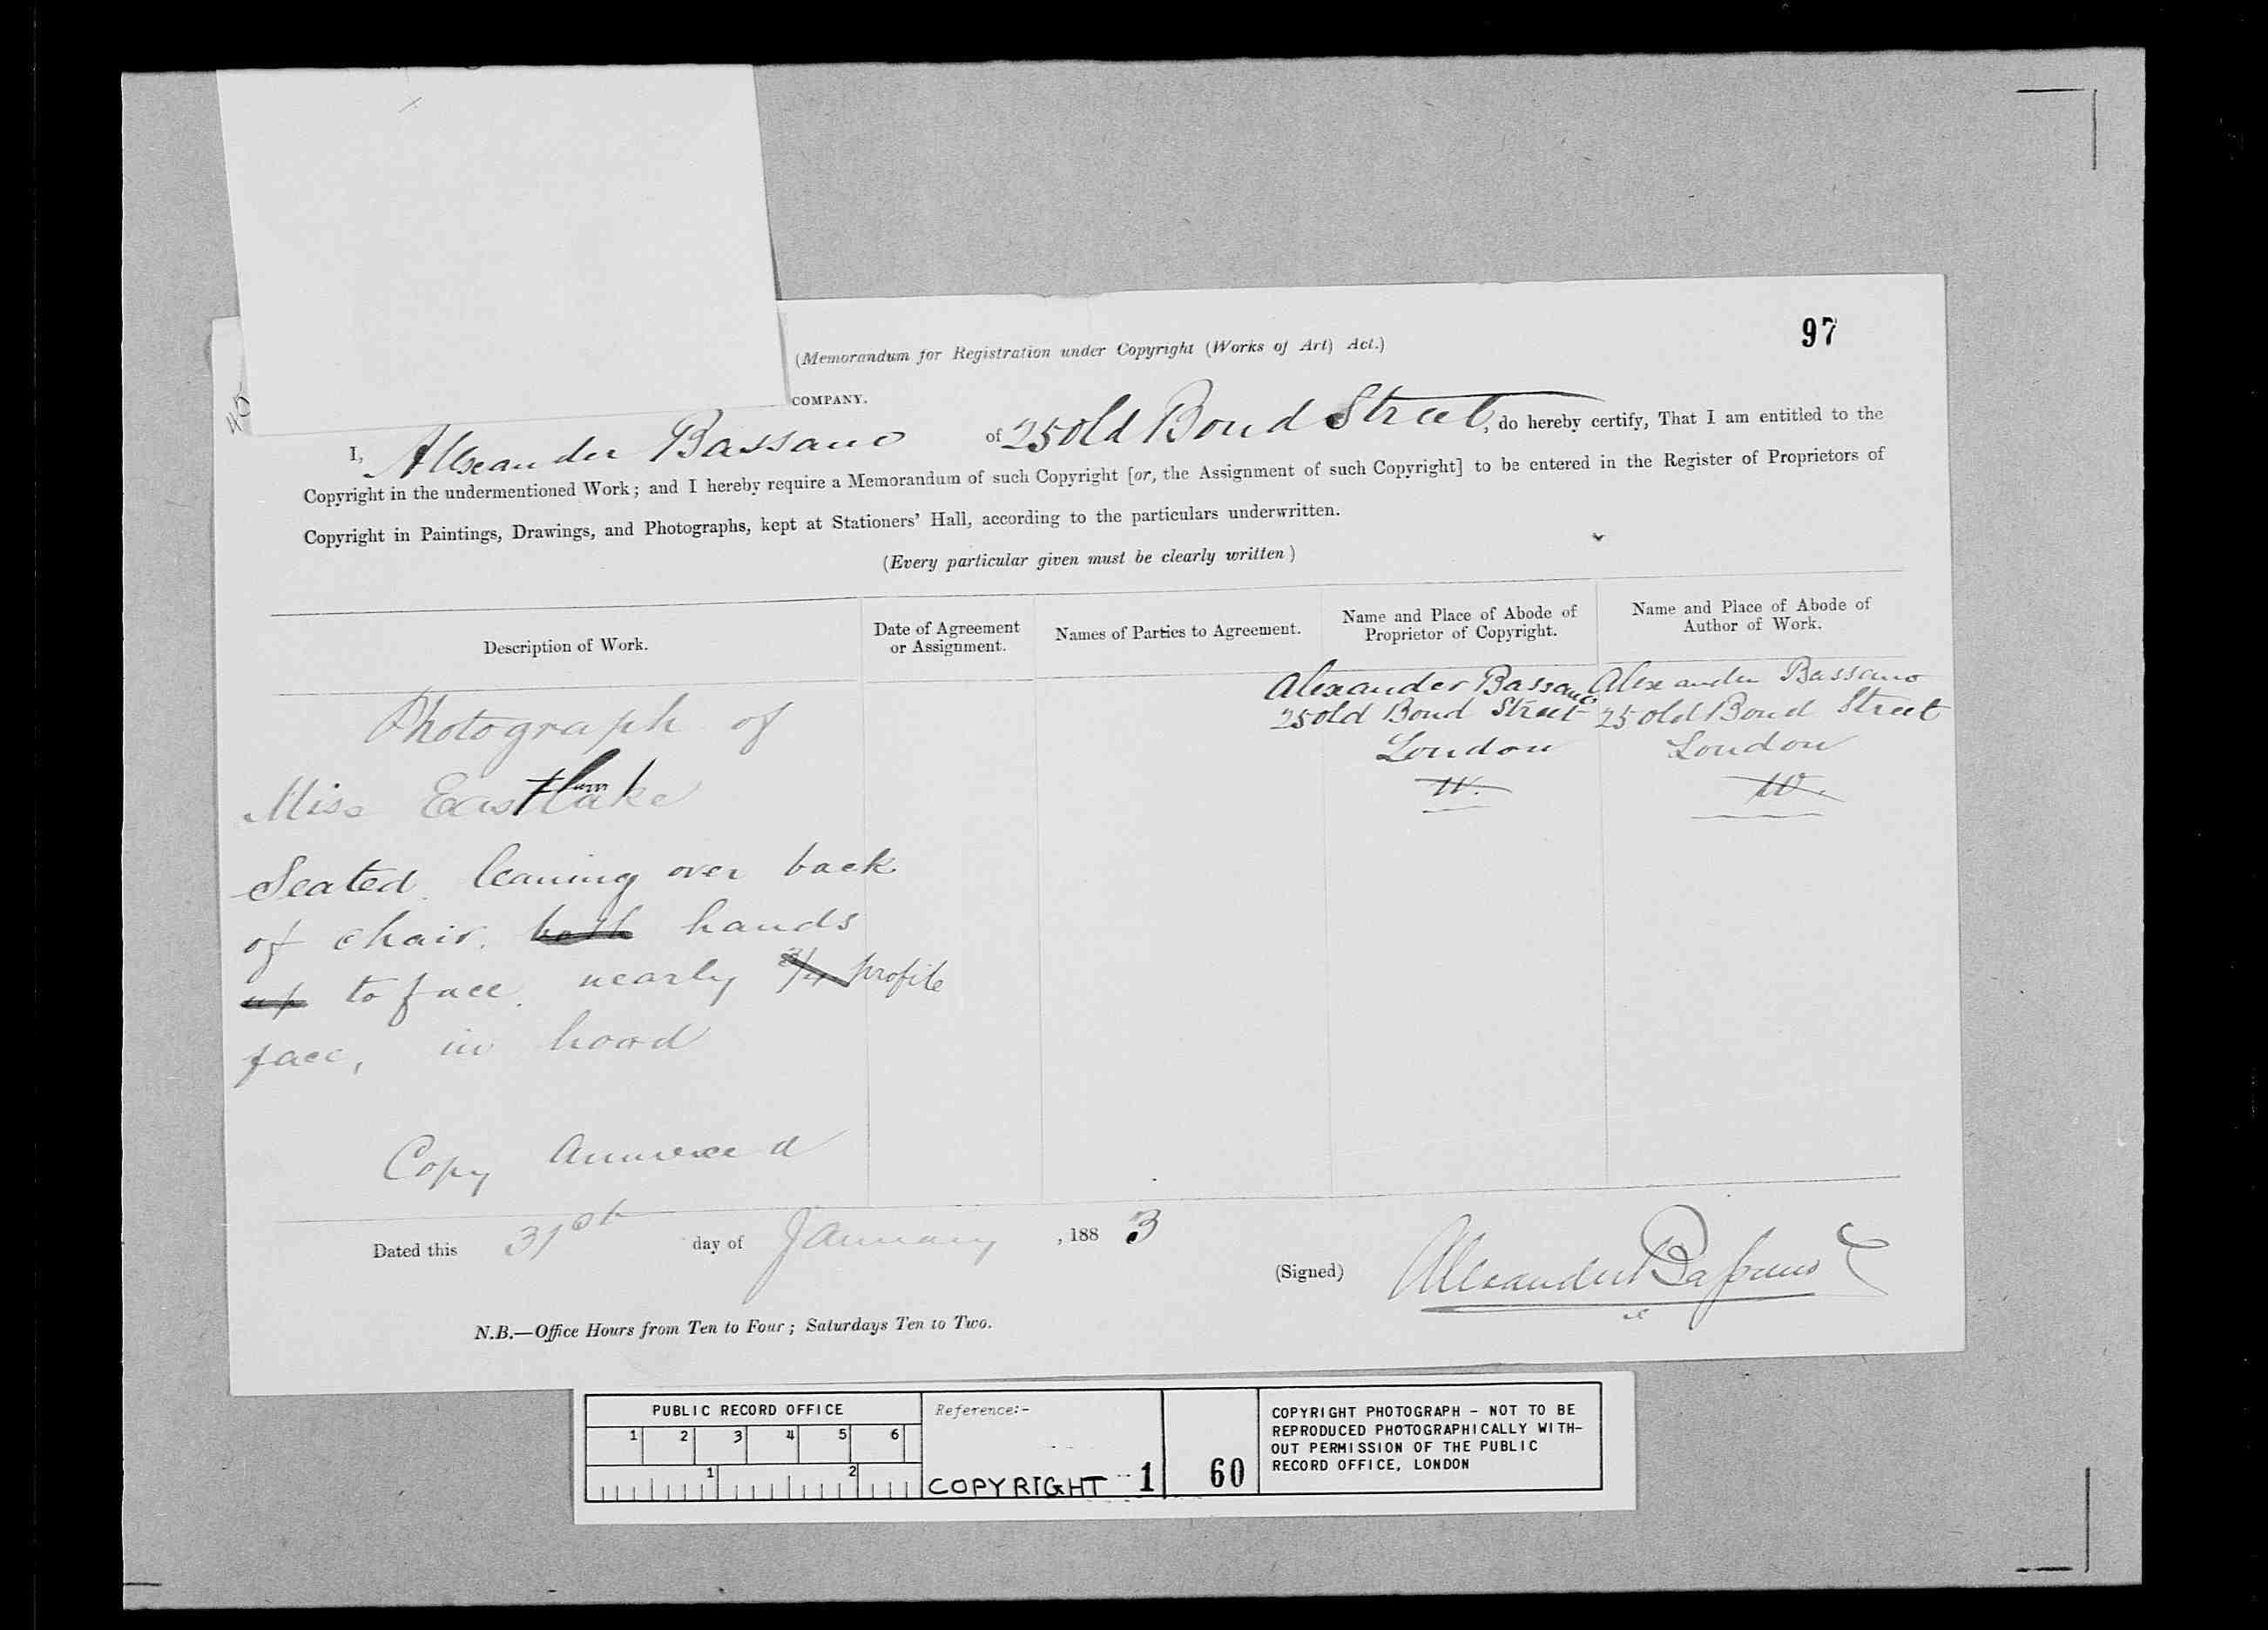 97
(Memorandum for Registration under Copyright (Works of Art) Act.)
COMPANY.
I, Alexander Bassano of 25 Old Bond Street, do hereby certify, That I am entitled to the
Copyright in the undermentioned Work; and I hereby require a Memorandum of such Copyright [or, the Assignment of such Copyright] to be entered in the Register of Proprietors of
Copyright in Paintings, Drawings, and Photographs, kept at Stationers' Hall, according to the particulars underwritten.
(Every particular given must be clearly written)
Description of Work.
Date of Agreement
or Assignment.
Names of Parties to Agreement.
Name and Place of Abode of
Proprietor of Copyright.
Name and Place of Abode of
Author of Work.
Photograph of
Miss Eastlake
Seated. leaning over back
of chair. both hands
up to face. nearly 3/4 profile
face, in hood
Copy annexed
Alexander Bassano
25 old Bond Street
London
W.
Alexander Bassano
25 old Bond Street
London
W.
Dated this 31st day of January, 1883
(Signed) Alexander Bassano
N.B.—Office Hours from Ten to Four; Saturdays Ten to Two.
PUBLIC RECORD OFFICE
1 2 3 4 5 6
1 2
Reference:-
COPYRIGHT 1 60
COPYRIGHT PHOTOGRAPH - NOT TO BE
REPRODUCED PHOTOGRAPHICALLY WITH-
OUT PERMISSION OF THE PUBLIC
RECORD OFFICE, LONDON